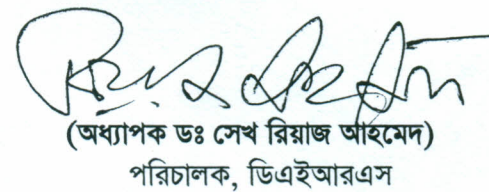 (অধ্যাপক ডঃ সেখ রিয়াজ আহমেদ)
পরিচালক, ডিএইআরএস